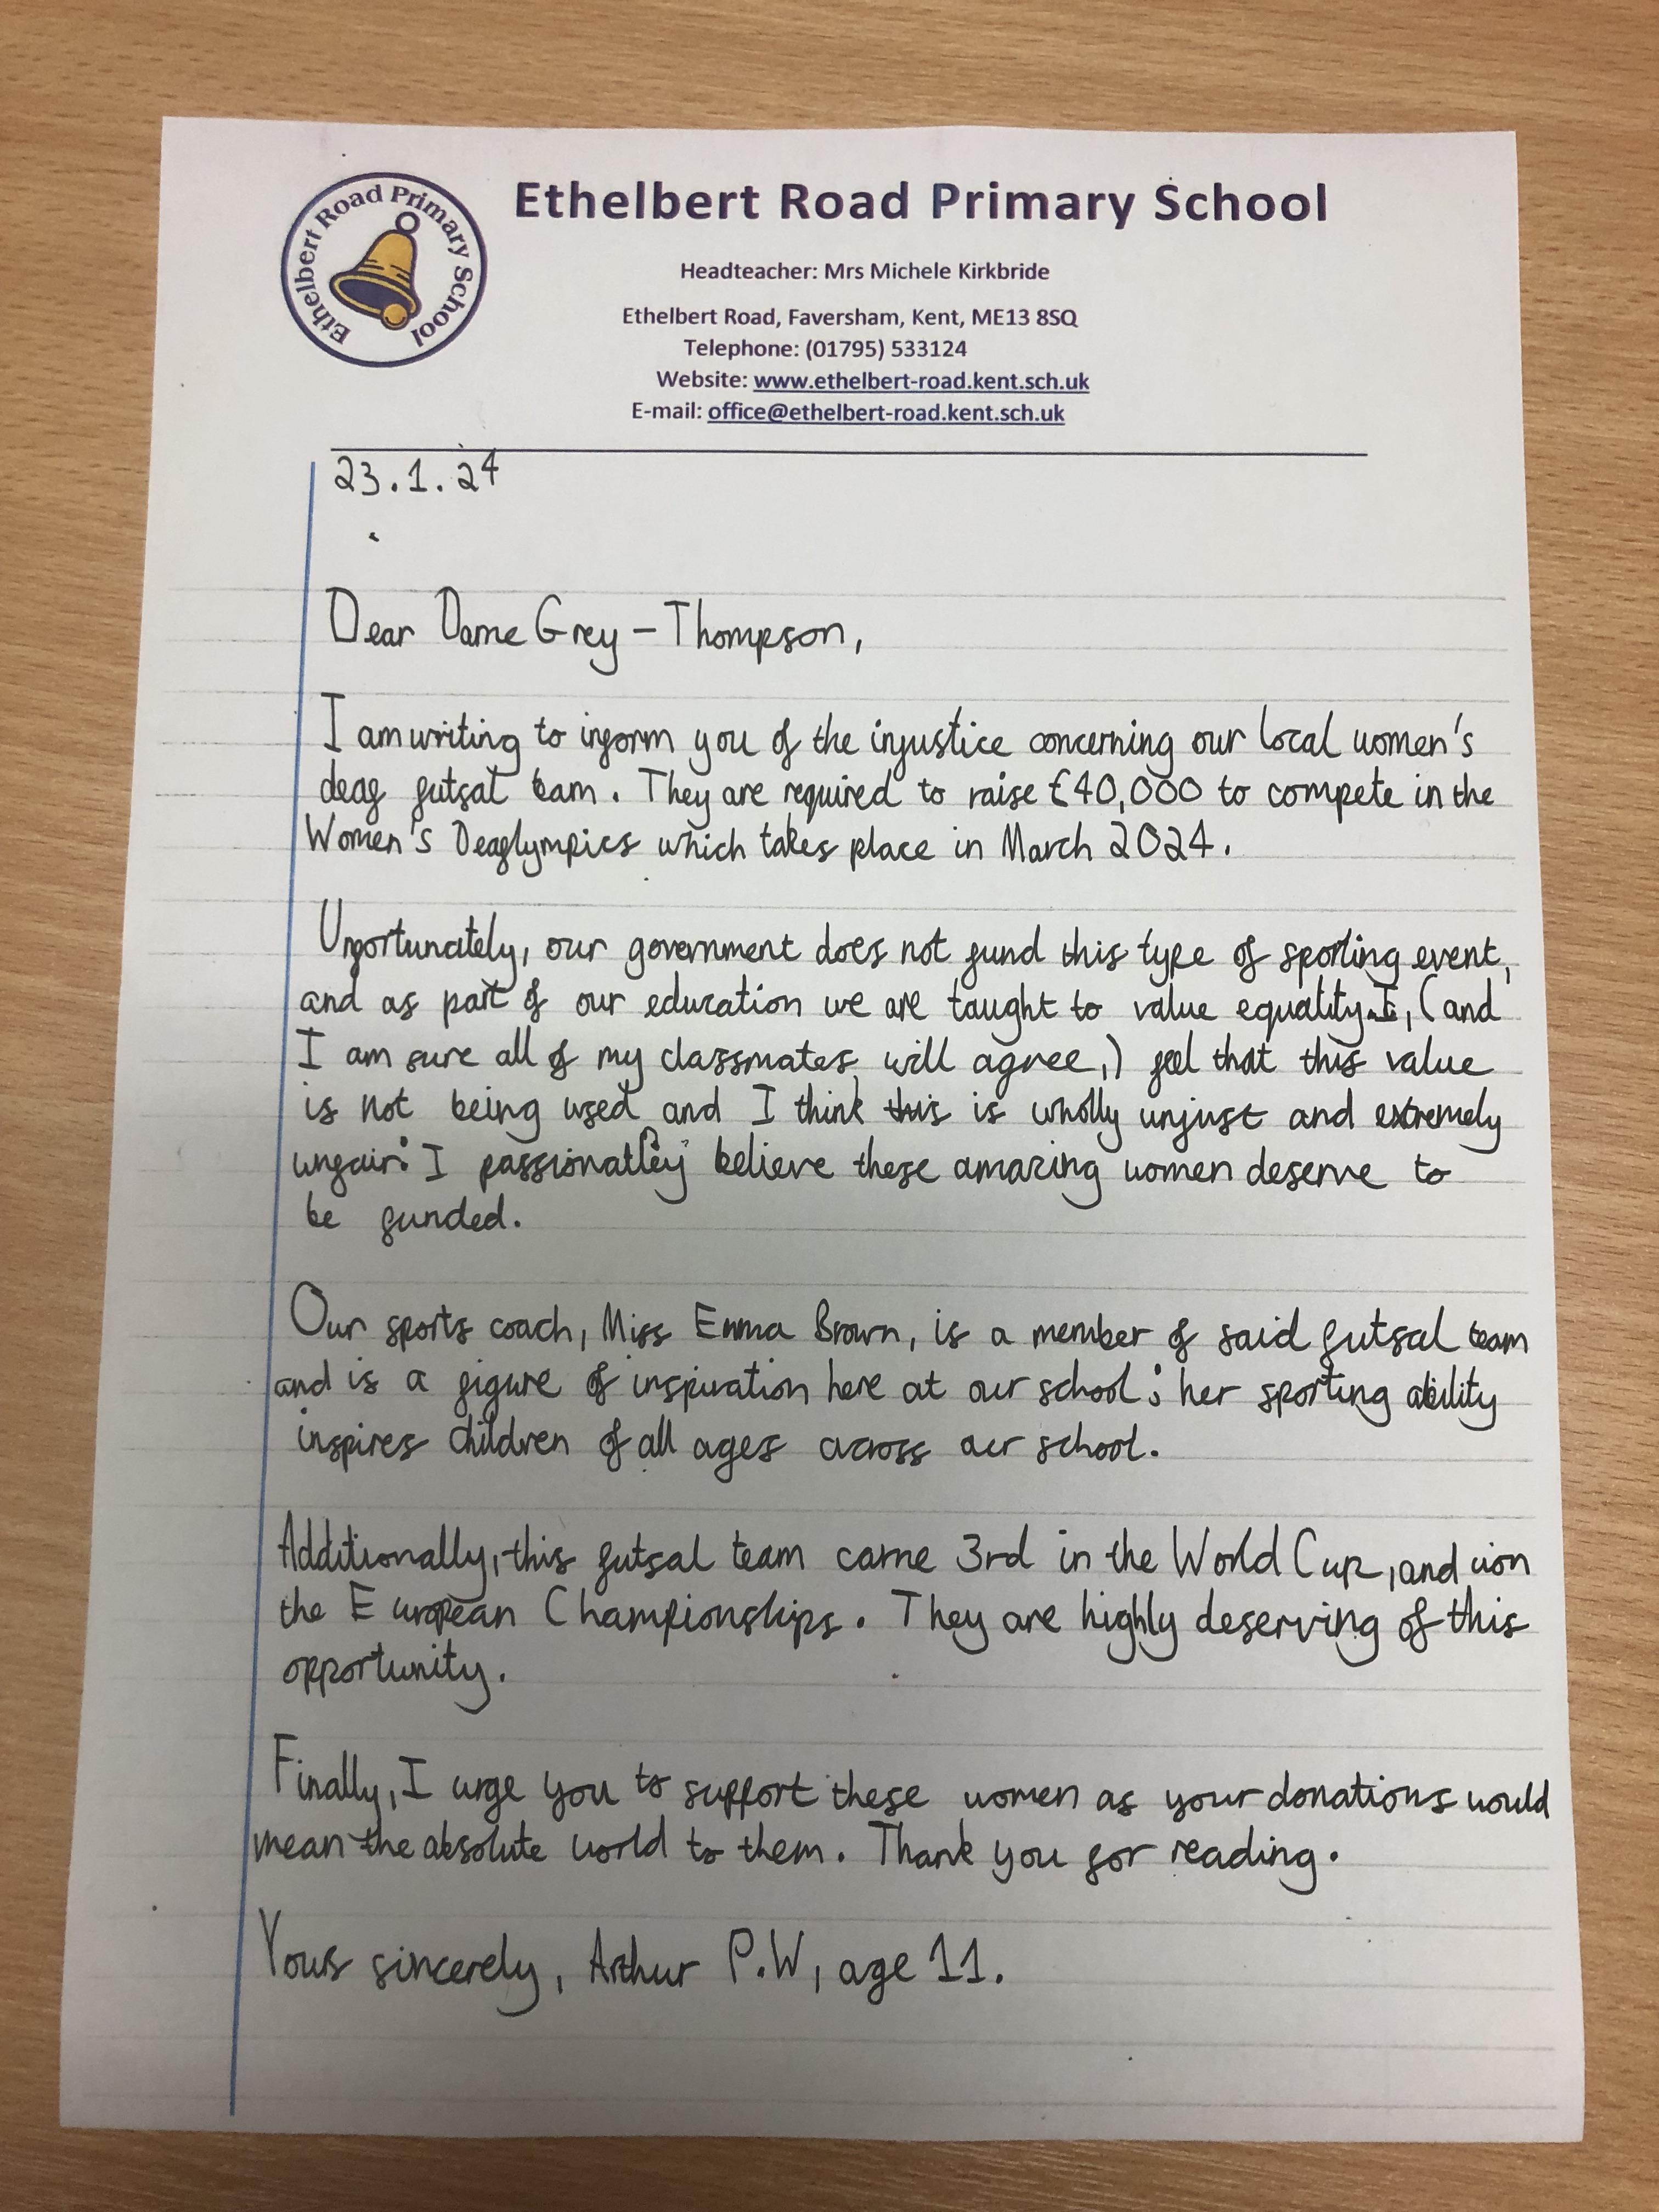 Ethelbert Road Primary School
Ethelbert Road Primary School
Headteacher: Mrs Michele Kirkbride
Ethelbert Road, Faversham, Kent, ME13 8SQ
Telephone: (01795) 533124
Website: www.ethelbert-road.kent.sch.uk
E-mail: office@ethelbert-road.kent.sch.uk
23.1.24
Dear Dame Grey-Thompson,
I am writing to inform you of the injustice concerning our local women's
deaf futsal team. They are required to raise £40,000 to compete in the
Women's Deaflympics which takes place in March 2024.
Unfortunately, our government does not fund this type of sporting event,
and as part of our education we are taught to value equality. I, (and
I am sure all of my classmates will agree,) feel that this value
is not being used and I think this is wholly unjust and extremely
unfair: I passionatley believe these amazing women deserve to
be funded.
Our sports coach, Miss Emma Brown, is a member of said futsal team
and is a figure of inspiration here at our school; her sporting ability
inspires children of all ages across our school.
Additionally, this futsal team came 3rd in the World Cup, and won
the European Championships. They are highly deserving of this
opportunity.
Finally, I urge you to support these women as your donations would
mean the absolute world to them. Thank you for reading.
Yours sincerely, Arthur P.W, age 11.